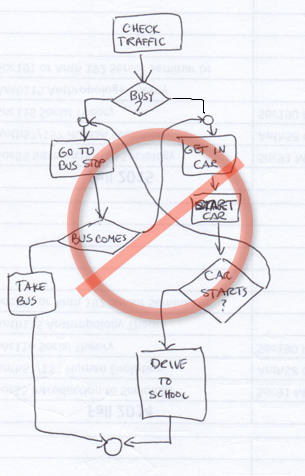 CHECK
TRAFFIC
BUSY
?
GO TO
BUS STOP
GET IN
CAR
START
CAR
BUS COMES
CAR
STARTS
?
TAKE
BUS
DRIVE
TO
SCHOOL